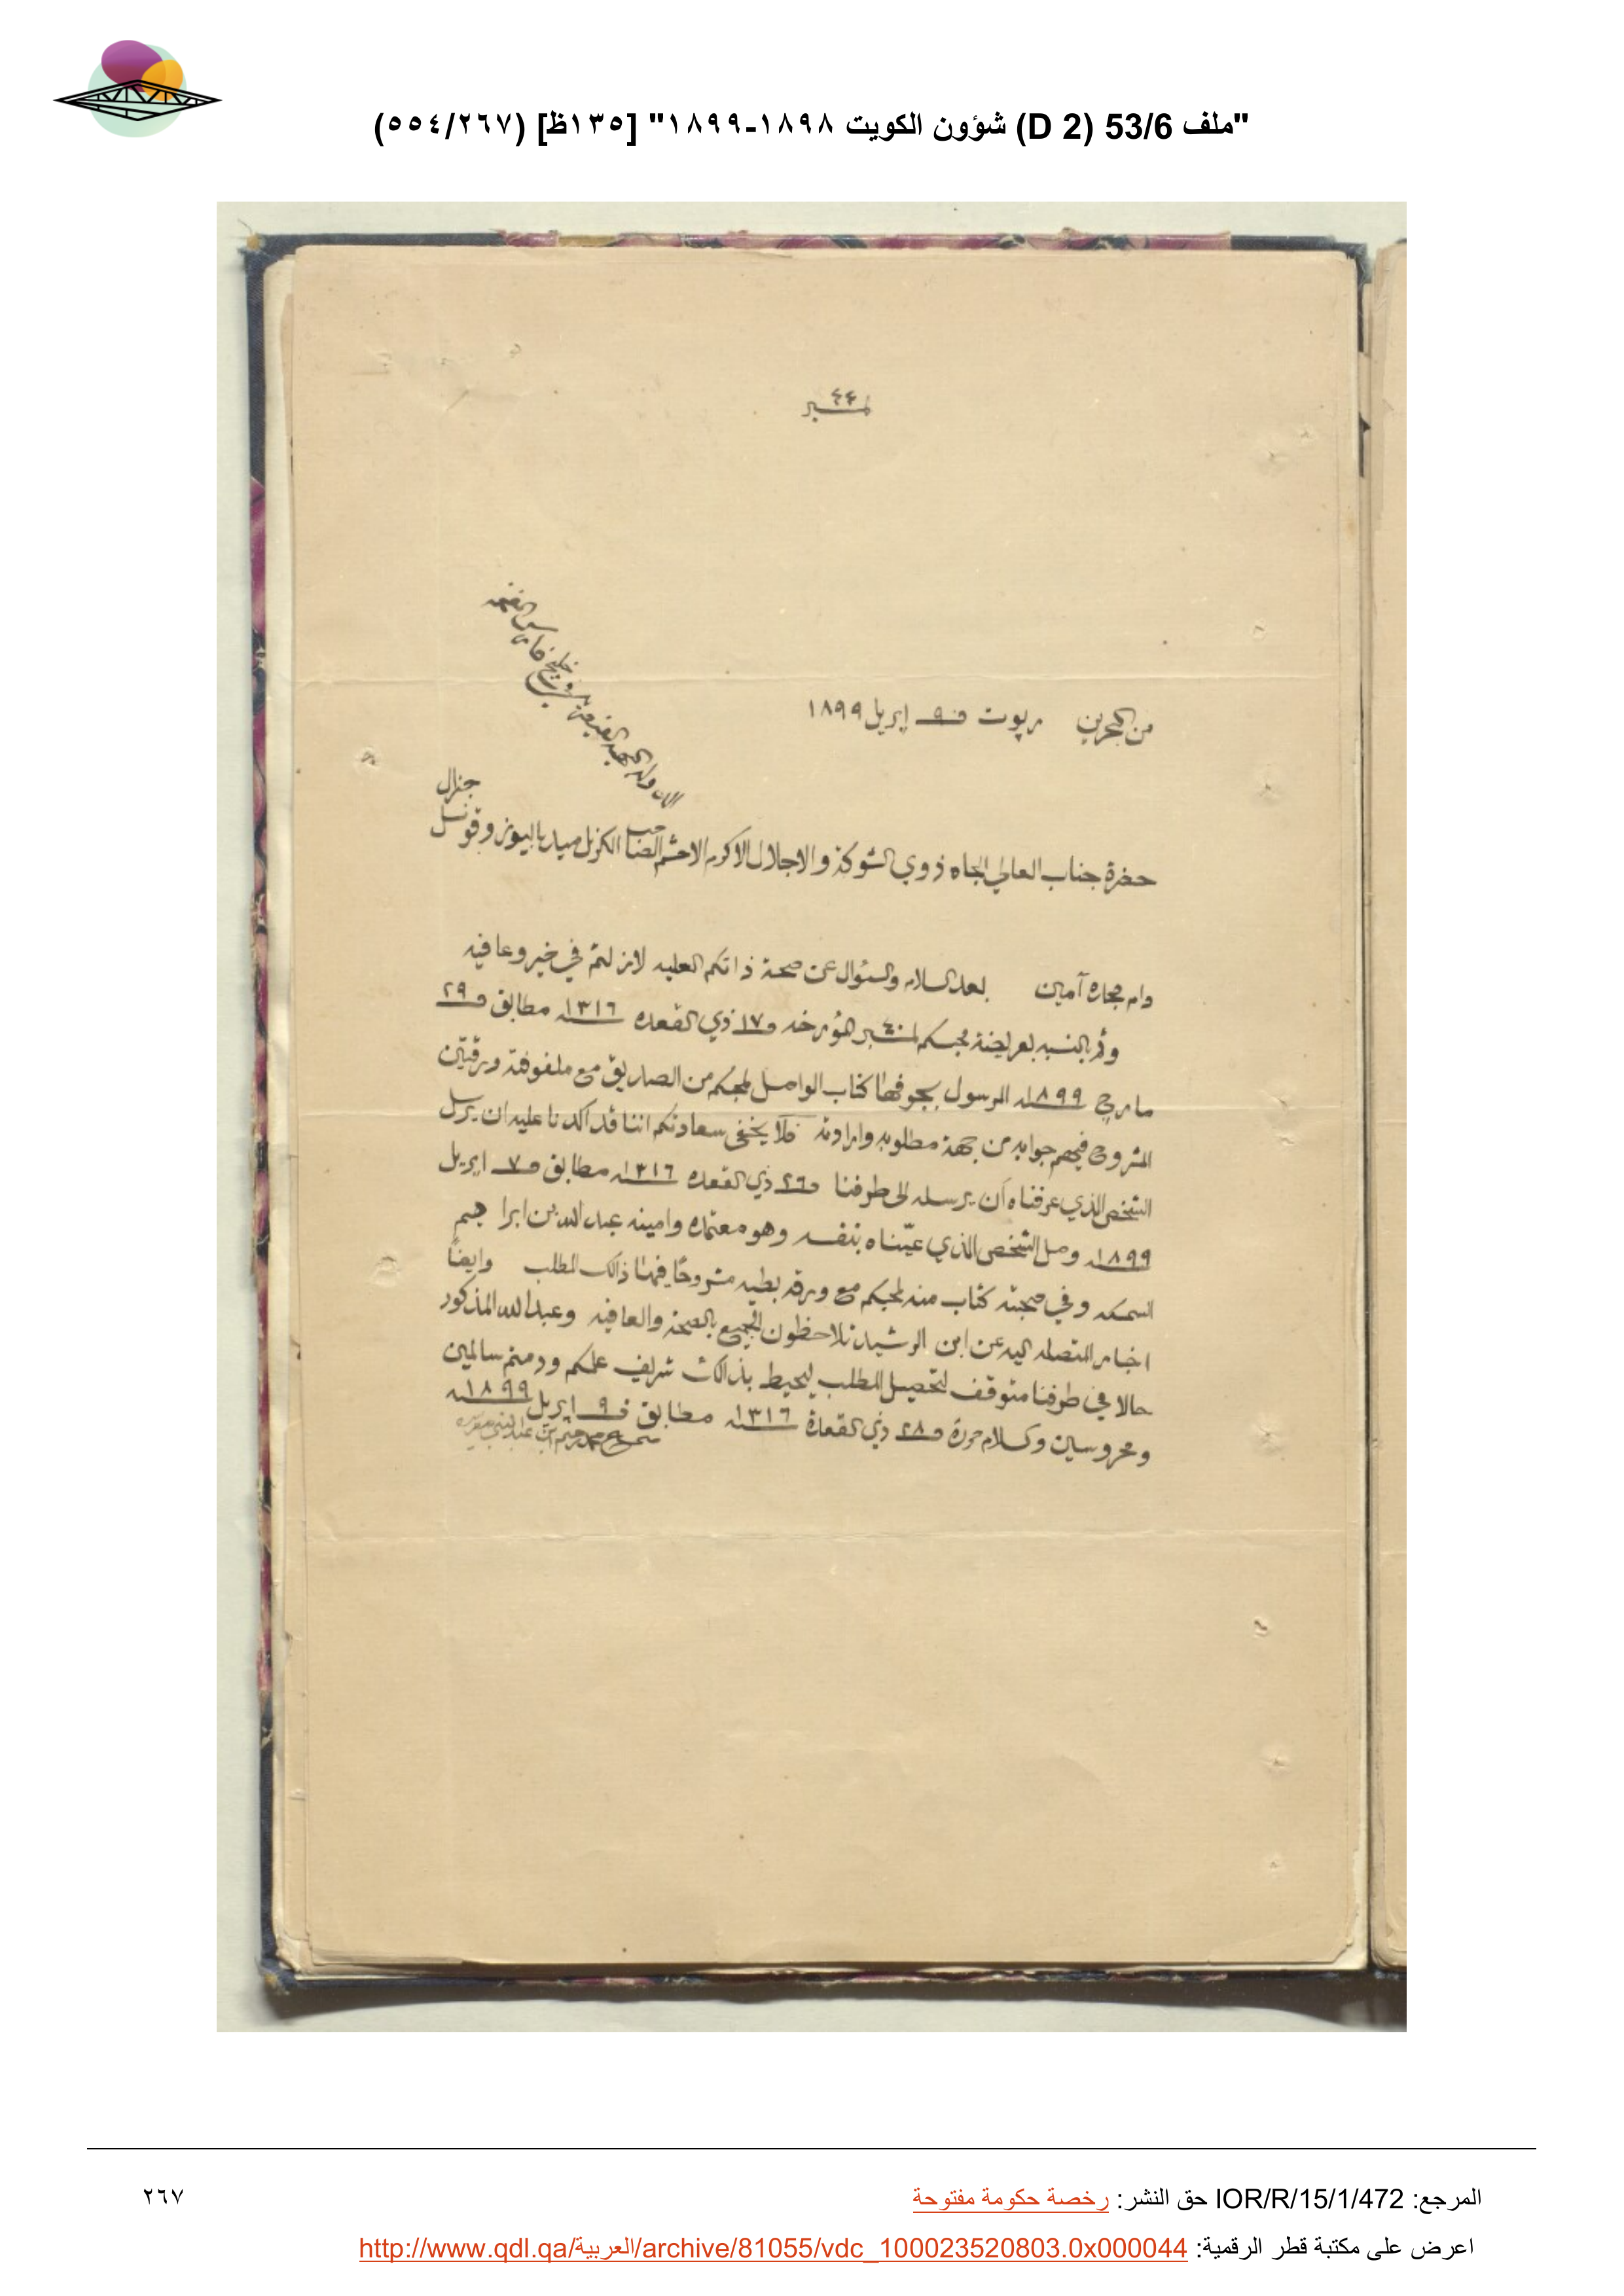 "ملف 53/6 (D 2) شؤون الكويت ١٨٩٨-١٨٩٩" [١٣٥ظ] (٢٦٧/٥٥٤)
نمبر ٤٤
من البحرين رپوت ٩ اپريل ١٨٩٩
الى الدولة البهية القيصرية في خليج فارس
جنرال
حضرة جناب العالي الجاه ذوي الشوكة والاجلال الاكرم الاحشم الصاحب الكرنل ميد باليوز وقونسل
دام مجده آمين بعد السلام والسئوال عن صحة ذاتكم العليه لازلتم في خير وعافيه
وثم بالنسبه لعريضة محبكم نمبر ٤٠ المؤرخه ١٧ ذي القعده ١٣١٦ مطابق ٢٩
مارچ ١٨٩٩ المرسول بجوفها كتاب الواصل لمحبكم من الصاريق مع ملفوفته ورقتين
المشروح فيهم جوابه من جهة مطلوبه وارادته فلا يخفى سعادتكم اننا قد اكدنا عليه ان يرسل
الشخص الذي عرفناه أن يرسله الى طرفنا ٢٦ ذي القعده ١٣١٦ مطابق ٧ اپريل
١٨٩٩ وصل الشخص الذي عيّناه بنفسه وهو معتمده وامينه عبدالله بن ابراهيم
السمكه وفي صحبته كتاب منه لمحبكم مع ورقه بطيه مشروحًا فيها ذالك المطلب وايضًا
اخبار المتصله اليه عن ابن الرشيد تلاحظون الجميع بالصحة والعافيه وعبدالله المذكور
حالا في طرفنا متوقف لتحصيل المطلب ليحيط بذالك شريف علمكم ودمتم سالمين
ومحروسين والسلام حررة ٢٨ ذي القعدة ١٣١٦ مطابق ٩ اپريل ١٨٩٩
محمد رحيم ابن عبدالنبي صفر
المرجع: IOR/R/15/1/472 حق النشر: رخصة حكومة مفتوحة
٢٦٧
اعرض على مكتبة قطر الرقمية: http://www.qdl.qa/العربية/archive/81055/vdc_100023520803.0x000044